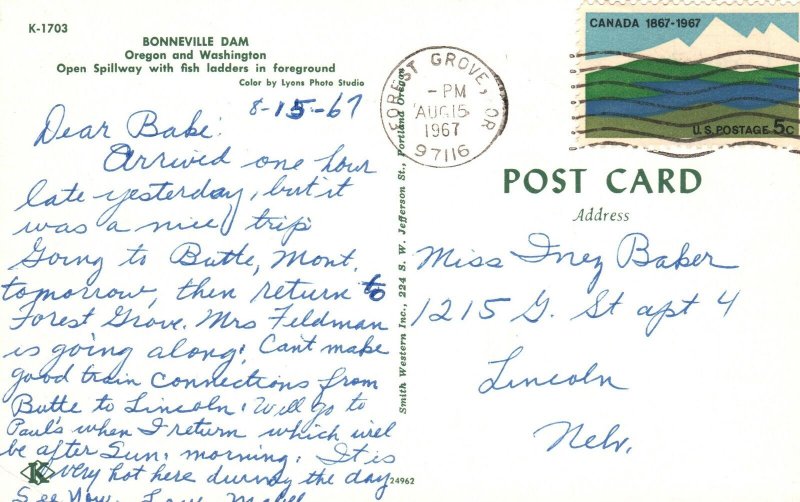 K-1703
BONNEVILLE DAM
Oregon and Washington
Open Spillway with fish ladders in foreground
Color by Lyons Photo Studio
8-15-67
Dear Babe:
Arrived one hour
late yesterday, but it
was a nice trip
Going to Butte, Mont.
tomorrow, then return to
Forest Grove. Mrs Feldman
is going along. Cant make
good train connections from
Butte to Lincoln. Will go to
Paul's when I return which will
be after Sun. morning. It is
very hot here during the day
See You. Love Mabel
K
24962
Smith Western Inc., 224 S. W. Jefferson St., Portland Oregon
FOREST GROVE, OR
- PM
AUG 15
1967
97116
CANADA 1867-1967
U.S. POSTAGE 5c
POST CARD
Address
Miss Inez Baker
1215 G. St apt 4
Lincoln
Nebr.